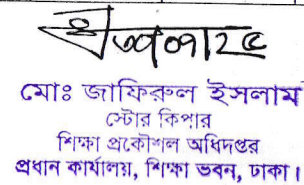 মোঃ জাফিরুল ইসলাম
স্টোর কিপার
শিক্ষা প্রকৌশল অধিদপ্তর
প্রধান কার্যালয়, শিক্ষা ভবন, ঢাকা।